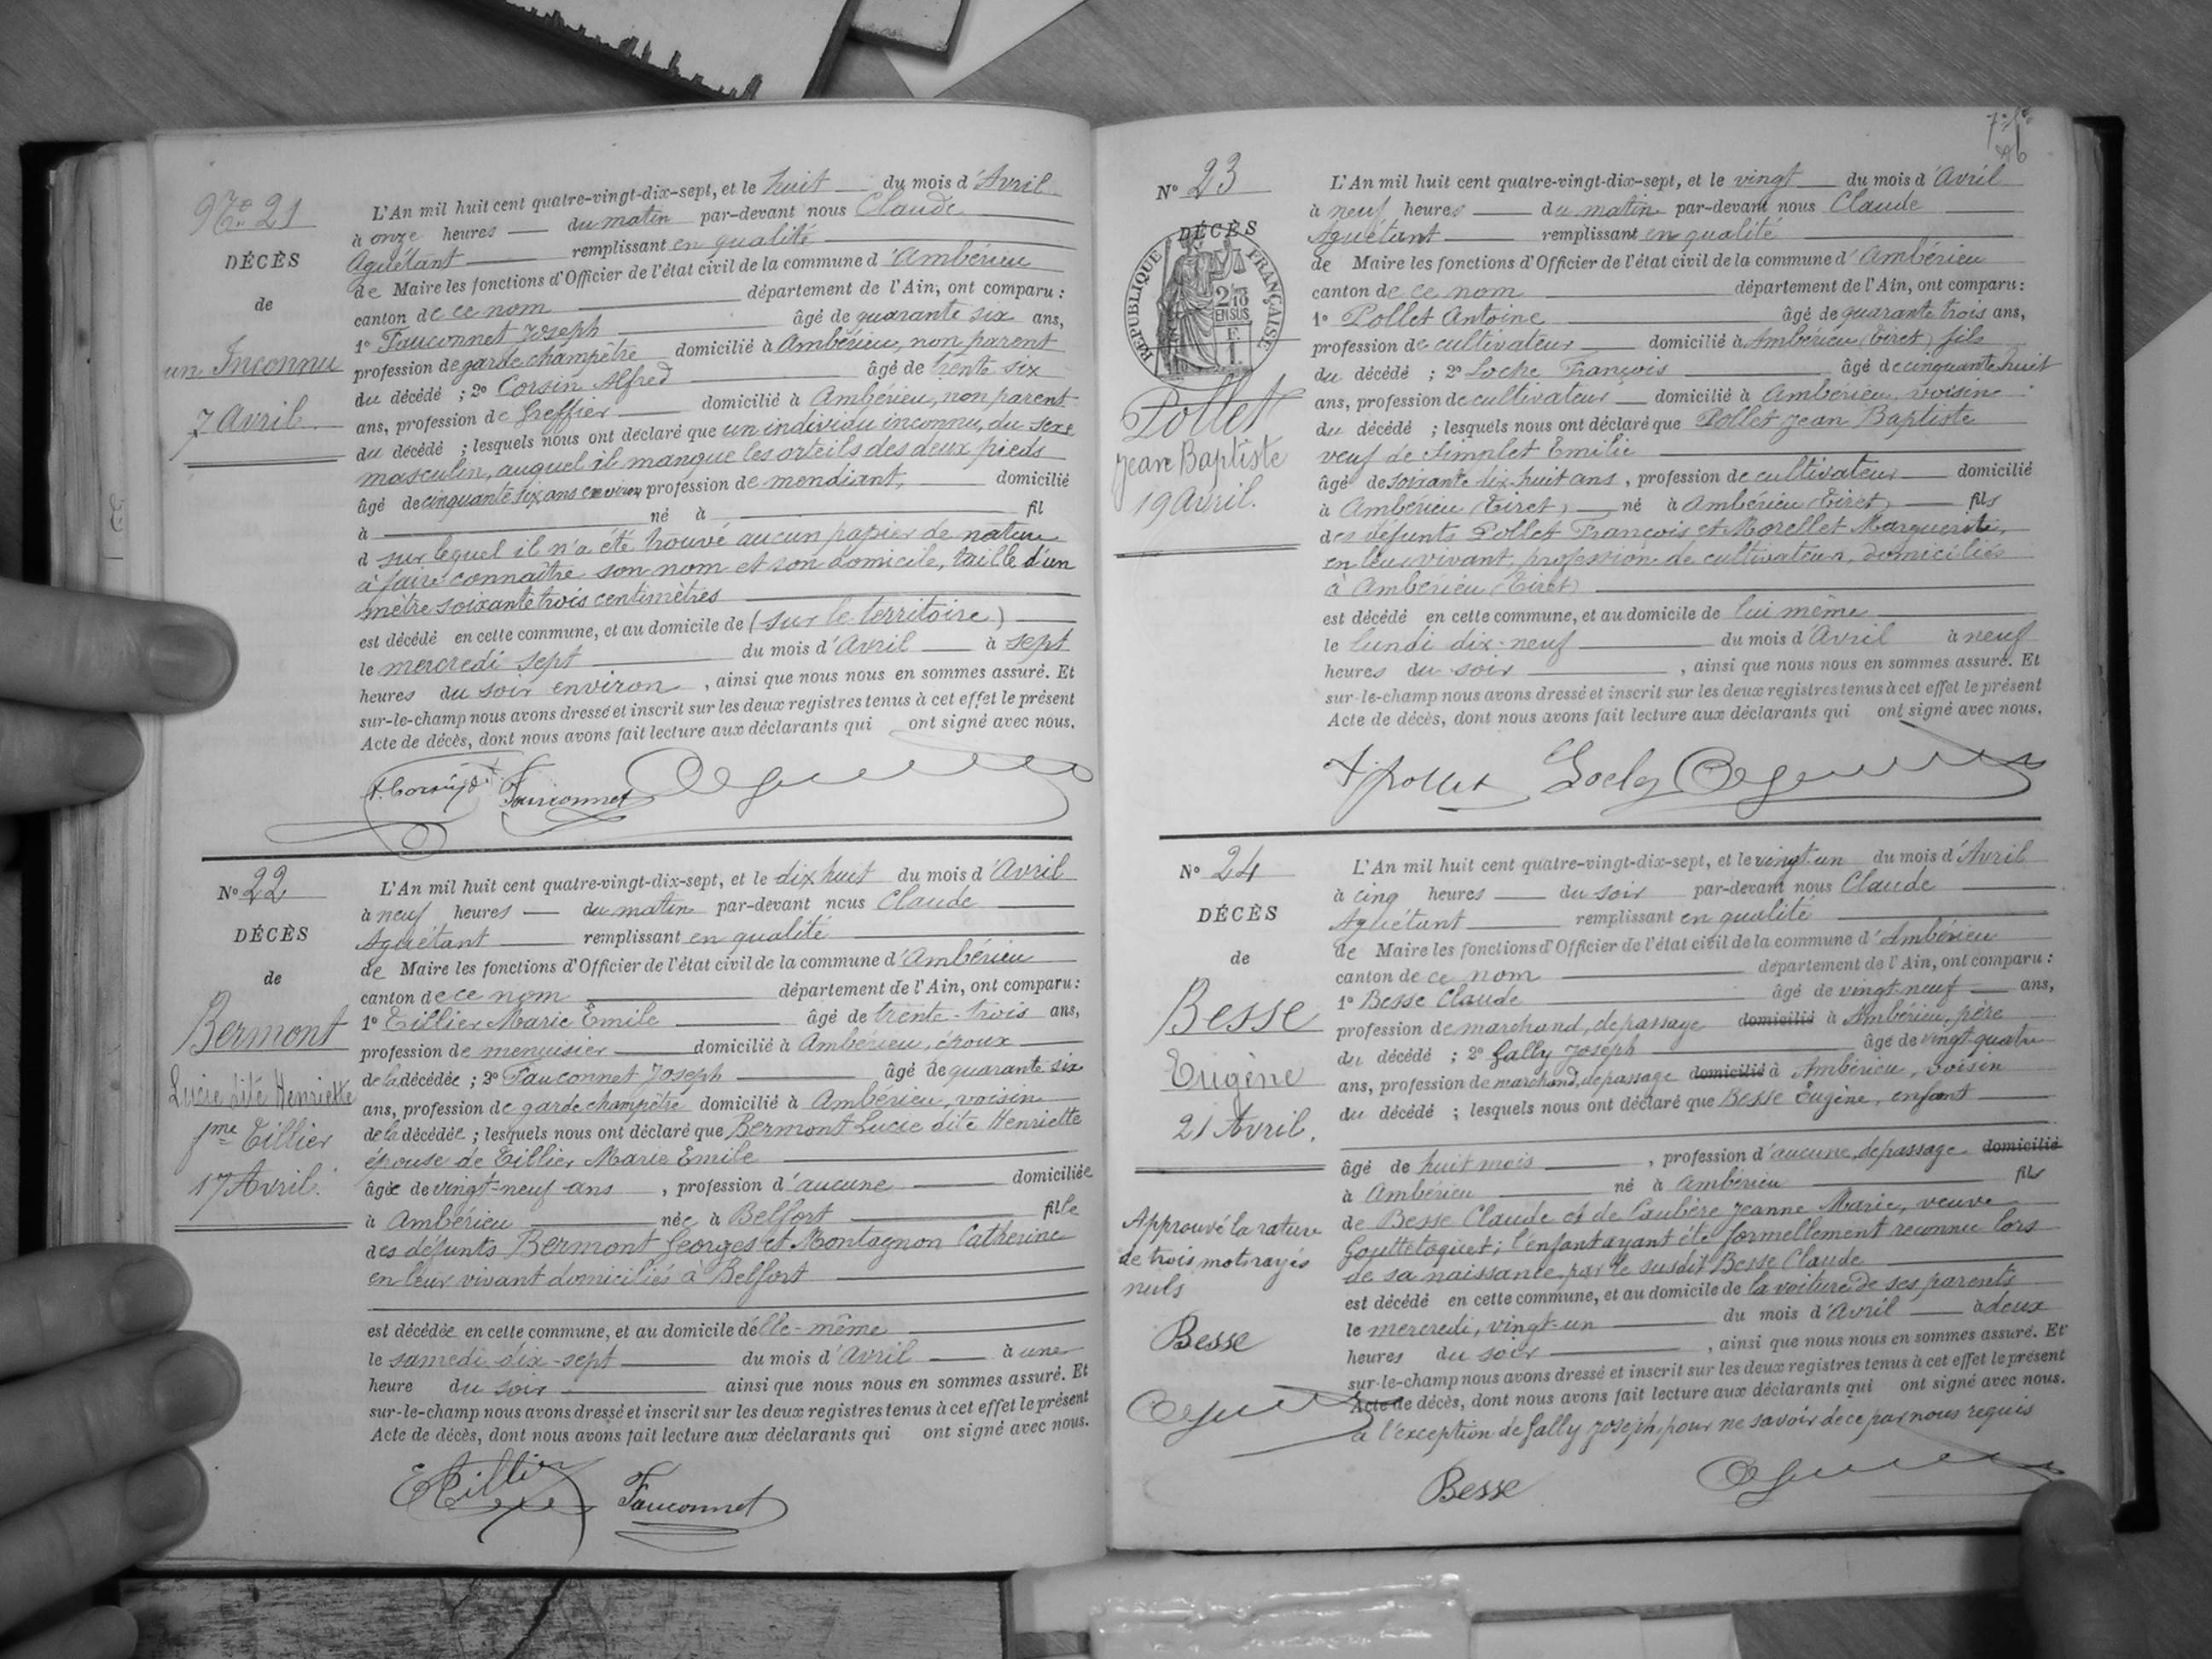 No 21
DÉCÈS
de
un Inconnu
7 Avril
L'An mil huit cent quatre-vingt-dix-sept, et le huit du mois d'Avril
à onze heures du matin par-devant nous Claude
Aguétant remplissant en qualité
de Maire les fonctions d'Officier de l'état civil de la commune d'Ambérieu
canton de ce nom département de l'Ain, ont comparu :
1° Fauconnet Joseph âgé de quarante six ans,
profession de garde champêtre domicilié à Ambérieu, non parent
du décédé ; 2° Corsin Alfred âgé de trente six
ans, profession de Greffier domicilié à Ambérieu, non parent
du décédé ; lesquels nous ont déclaré que un individu inconnu, du sexe
masculin, auquel il manque les orteils des deux pieds
âgé de cinquante six ans environ profession de mendiant, domicilié
à né à fil
d sur lequel il n'a été trouvé aucun papier de nature
à faire connaître son nom et son domicile, taille d'un
mètre soixante trois centimètres
est décédé en cette commune, et au domicile de (sur le territoire)
le mercredi sept du mois d'Avril à sept
heures du soir environ, ainsi que nous nous en sommes assuré. Et
sur-le-champ nous avons dressé et inscrit sur les deux registres tenus à cet effet le présent
Acte de décès, dont nous avons fait lecture aux déclarants qui ont signé avec nous.
Fauconnet
N° 22
DÉCÈS
de
Bermont
Lucie dite Henriette
fme Tillier
17 Avril.
L'An mil huit cent quatre-vingt-dix-sept, et le dix huit du mois d'Avril
à neuf heures du matin par-devant nous Claude
Aguétant remplissant en qualité
de Maire les fonctions d'Officier de l'état civil de la commune d'Ambérieu
canton de ce nom département de l'Ain, ont comparu :
1° Tillier Marie Emile âgé de trente-trois ans,
profession de menuisier domicilié à Ambérieu, époux
de la décédée ; 2° Fauconnet Joseph âgé de quarante six
ans, profession de garde champêtre domicilié à Ambérieu, voisin
de la décédée ; lesquels nous ont déclaré que Bermont Lucie dite Henriette
épouse de Tillier Marie Emile
âgée de vingt-neuf ans, profession d'aucune domiciliée
à Ambérieu née à Belfort fille
des défunts Bermont Georges et Montagnon Catherine
en leur vivant domiciliés à Belfort
est décédée en cette commune, et au domicile d'elle-même
le samedi dix-sept du mois d'Avril à une
heure du soir ainsi que nous nous en sommes assuré. Et
sur-le-champ nous avons dressé et inscrit sur les deux registres tenus à cet effet le présent
Acte de décès, dont nous avons fait lecture aux déclarants qui ont signé avec nous.
ETillier Fauconnet
N° 23
DÉCÈS
RÉPUBLIQUE FRANÇAISE
2/10
EN SUS
Pollet
Jean Baptiste
19 Avril.
L'An mil huit cent quatre-vingt-dix-sept, et le vingt du mois d'Avril
à neuf heures du matin par-devant nous Claude
Aguétant remplissant en qualité
de Maire les fonctions d'Officier de l'état civil de la commune d'Ambérieu
canton de ce nom département de l'Ain, ont comparu :
1° Pollet Antoine âgé de quarante trois ans,
profession de cultivateur domicilié à Ambérieu (Tiret) fils
du décédé ; 2° Loche François âgé de cinquante huit
ans, profession de cultivateur domicilié à Ambérieu, voisin
du décédé ; lesquels nous ont déclaré que Pollet Jean Baptiste
veuf de Simplet Emilie
âgé de soixante dix-huit ans, profession de cultivateur domicilié
à Ambérieu (Tiret) né à Ambérieu (Tiret) fils
des défunts Pollet François et Morellet Marguerite,
en leur vivant, profession de cultivateurs, domiciliés
à Ambérieu (Tiret)
est décédé en cette commune, et au domicile de lui même
le lundi dix-neuf du mois d'Avril à neuf
heures du soir, ainsi que nous nous en sommes assuré. Et
sur-le-champ nous avons dressé et inscrit sur les deux registres tenus à cet effet le présent
Acte de décès, dont nous avons fait lecture aux déclarants qui ont signé avec nous.
N° 24
DÉCÈS
de
Besse
Eugène
21 Avril.
L'An mil huit cent quatre-vingt-dix-sept, et le vingt-un du mois d'Avril
à cinq heures du soir par-devant nous Claude
Aguétant remplissant en qualité
de Maire les fonctions d'Officier de l'état civil de la commune d'Ambérieu
canton de ce nom département de l'Ain, ont comparu :
1° Besse Claude âgé de vingt-neuf ans,
profession de marchand, de passage domicilié à Ambérieu, père
du décédé ; 2° Gally Joseph âgé de vingt-quatre
ans, profession de marchand, de passage domicilié à Ambérieu, voisin
du décédé ; lesquels nous ont déclaré que Besse Eugène, enfant
âgé de huit mois, profession d'aucune, de passage domicilié
à Ambérieu né à Ambérieu fils
de Besse Claude et de Caubère Jeanne Marie, veuve
Gouttetoquet ; l'enfant ayant été formellement reconnu lors
de sa naissance par le susdit Besse Claude
est décédé en cette commune, et au domicile de la voiture de ses parents
le mercredi, vingt-un du mois d'Avril à deux
heures du soir, ainsi que nous nous en sommes assuré. Et
sur-le-champ nous avons dressé et inscrit sur les deux registres tenus à cet effet le présent
Acte de décès, dont nous avons fait lecture aux déclarants qui ont signé avec nous.
à l'exception de Gally Joseph, pour ne savoir de ce par nous requis
Approuvé la rature
de trois mots rayés
nuls
Besse
Besse